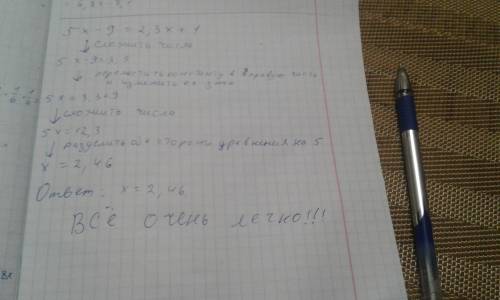 5x-9=2,3x+1
↓сложить числа
5x-9=3,3
↓ переместить константу в правую часть
и изменить знак
5x=3,3+9
↓сложить числа
5x=12,3
↓ разделить обе стороны уравнения на 5
x=2,46
Ответ: x=2,46
ВСЁ ОЧЕНЬ легко!!!